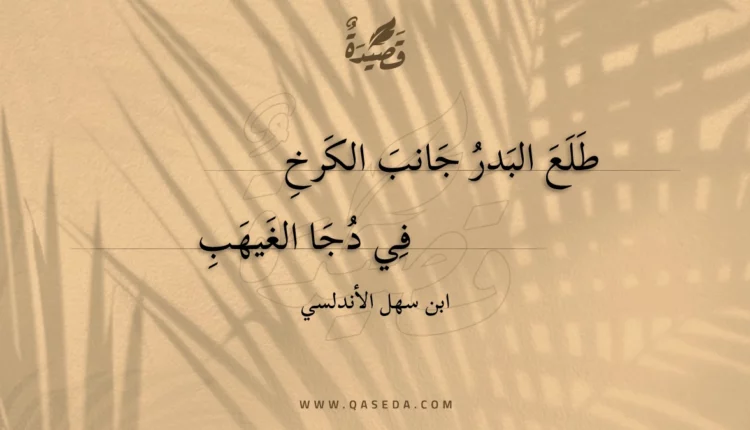 قَصِيْدَةٌ
طَلَعَ البَدرُ جَانبَ الكَرخِ
فِي دُجَا الغَيهَبِ
ابن سهل الأندلسي
WWW.QASEDA.COM